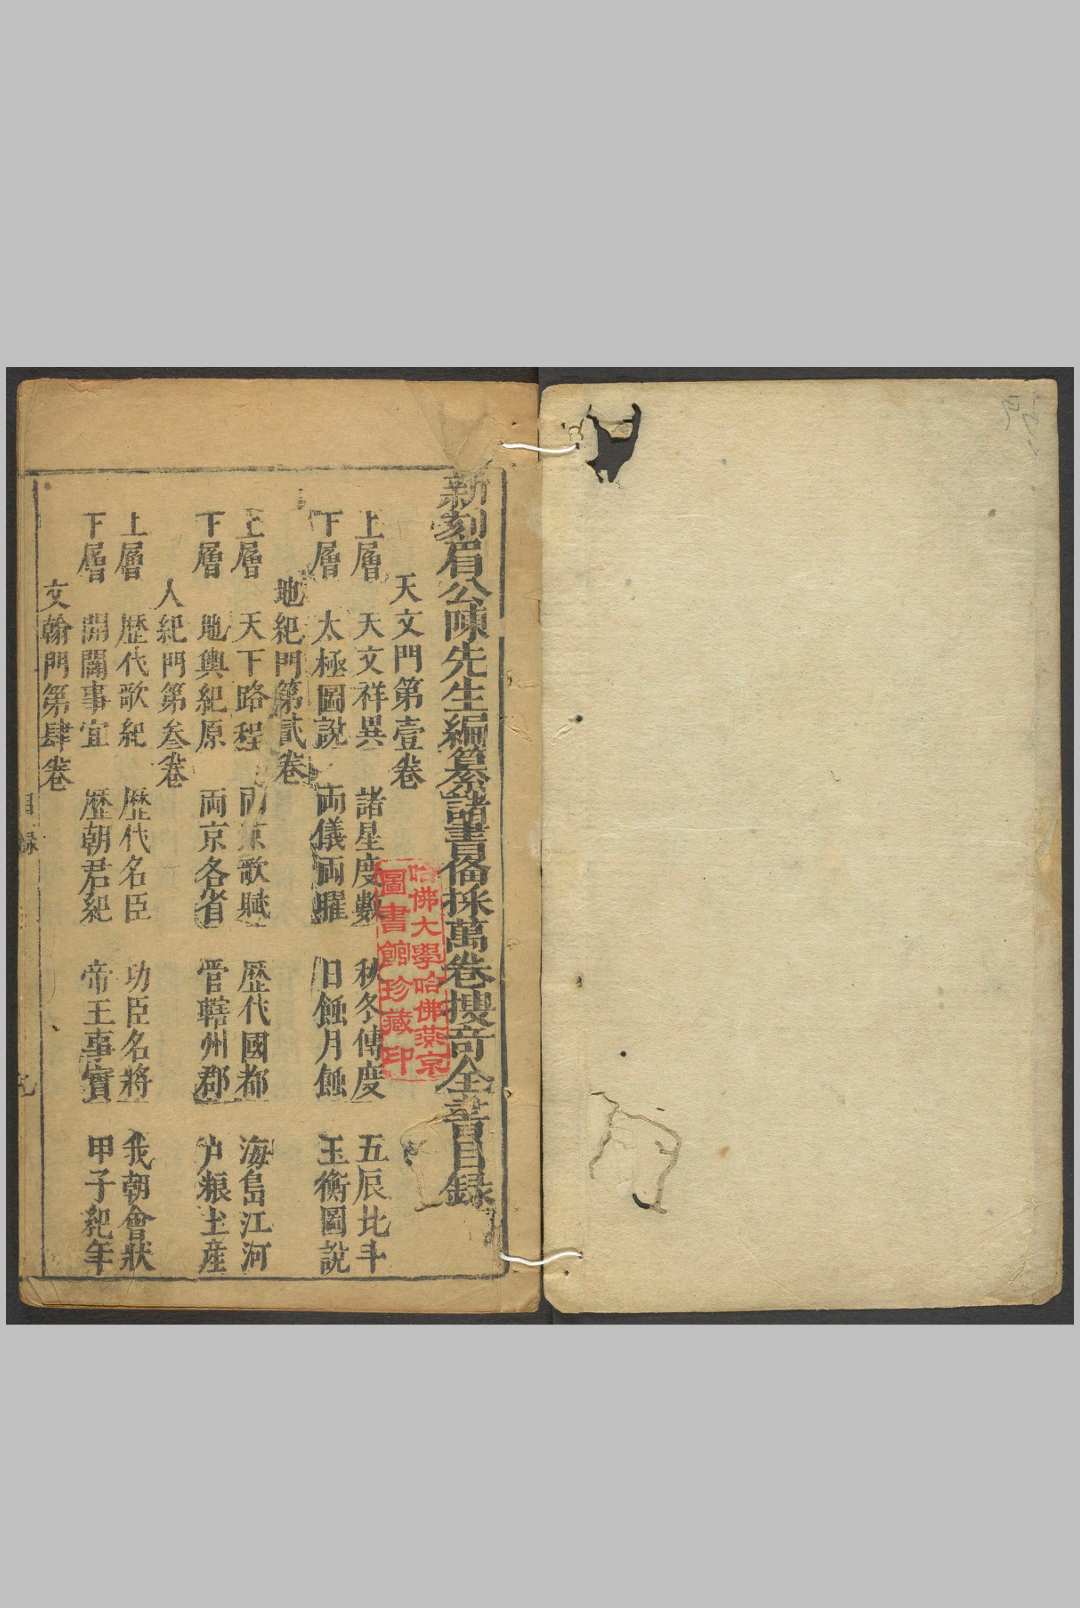 新刻眉公陳先生編纂諸書俻採萬卷搜竒全書目録
天文門第壹卷
上層 天文祥異 諸星度數 秋冬傳度 五辰北斗
下層 太極圖說 両儀両曜 日蝕月蝕 玉衡圖說
地紀門第貳卷
上層 天下路程 両京歌賦 歷代國都 海島江河
下層 地輿紀原 両京各省 管轄州郡 户粮土産
人紀門第叁卷
上層 歷代歌紀 歷代名臣 功臣名將 我朝會狀
下層 開闢事宜 歷朝君紀 帝王事實 甲子紀年
文翰門第肆卷
目録
哈佛大學哈佛燕京
圖書館珍藏印